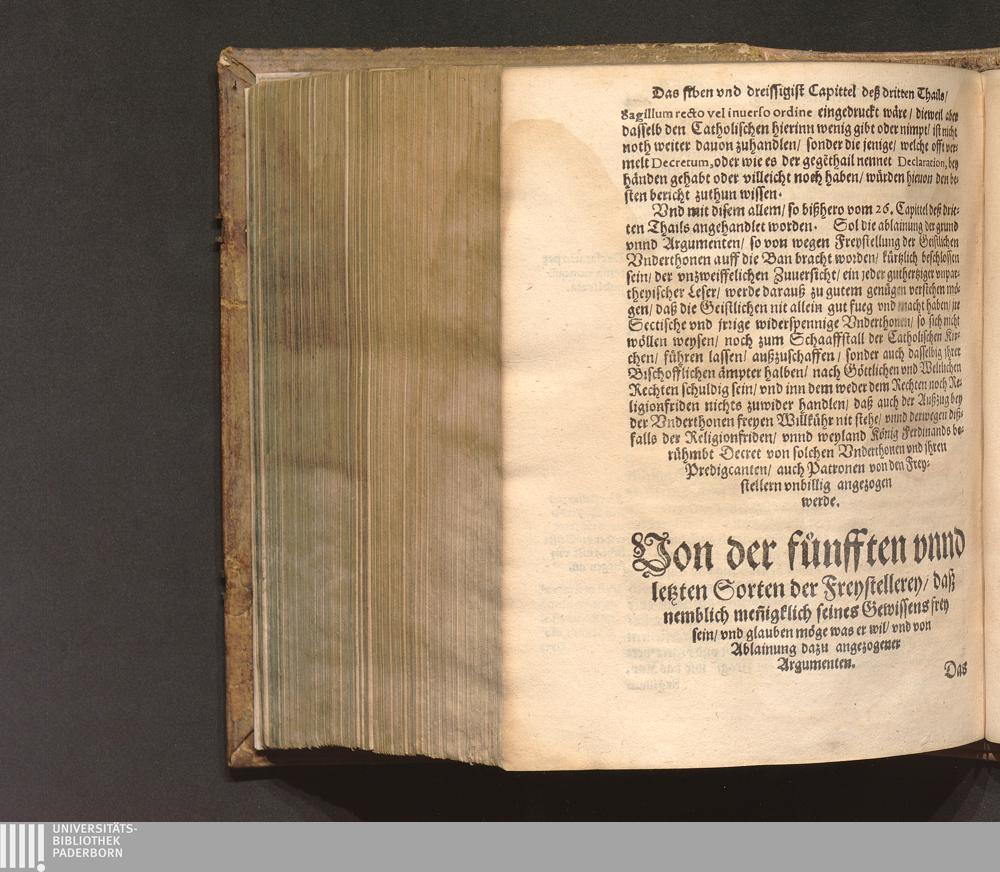 Das siben vnd dreissigist Capittel deß dritten Thails/
Sagillum recto vel inuerso ordine eingedruckt wäre/ dieweil aber
dasselb den Catholischen hierinn wenig gibt oder nimpt/ ist nicht
noth weiter dauon zuhandlen/ sonder die jenige/ welche offt ver-
melt Decretum, oder wie es der gegēthail nennet Declaration, bey
händen gehabt oder villeicht noch haben/ würden hieuon den be-
sten bericht zuthun wissen.
Vnd mit disem allem/ so bißhero vom 26. Capittel deß drit-
ten Thails angehandlet worden. Sol die ablainung der grund
vnnd Argumenten/ so von wegen Freystellung der Geistlichen
Vnderthonen auff die Ban bracht worden/ kürtzlich beschlossen
sein/ der vnzweiffelichen Zuuersicht/ ein jeder guthertziger vnpar-
theyischer Leser/ werde darauß zu gutem genügen verstehen mö-
gen/ daß die Geistlichen nit allein gut fueg vnd macht haben/ jre
Sectische vnd jrrige widerspennige Vnderthonen/ so sich nicht
wöllen weysen/ noch zum Schaaffstall der Catholischen Kir-
chen/ führen lassen/ außzuschaffen/ sonder auch dasselbig jhrer
Bischofflichen ämpter halben/ nach Göttlichen vnd Weltlichen
Rechten schuldig sein/ vnd inn dem weder dem Rechten noch Re-
ligionfriden nichts zuwider handlen/ daß auch der Außzug bey
der Vnderthonen freyen Willkühr nit stehe/ vnnd derwegen diß-
falls der Religionfriden/ vnnd weyland König Ferdinands be-
rühmbt Decret von solchen Vnderthonen vnd jhren
Predigcanten/ auch Patronen von den Frey-
stellern vnbillig angezogen
werde.
Von der fünfften vnnd
letzten Sorten der Freystellerey/ daß
nemblich meñigklich seines Gewissens frey
sein/ vnd glauben möge was er wil/ vnd von
Ablainung dazu angezogener
Argumenten.
Das
UNIVERSITÄTS-
BIBLIOTHEK
PADERBORN